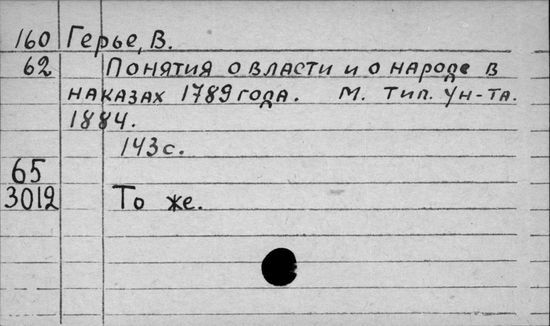 160 Герье, В.
62 Понятия о власти и о народе в
наказах 1789 года. М. Тип. Ун-та.
1884.
143 с.
65
3012 То же.